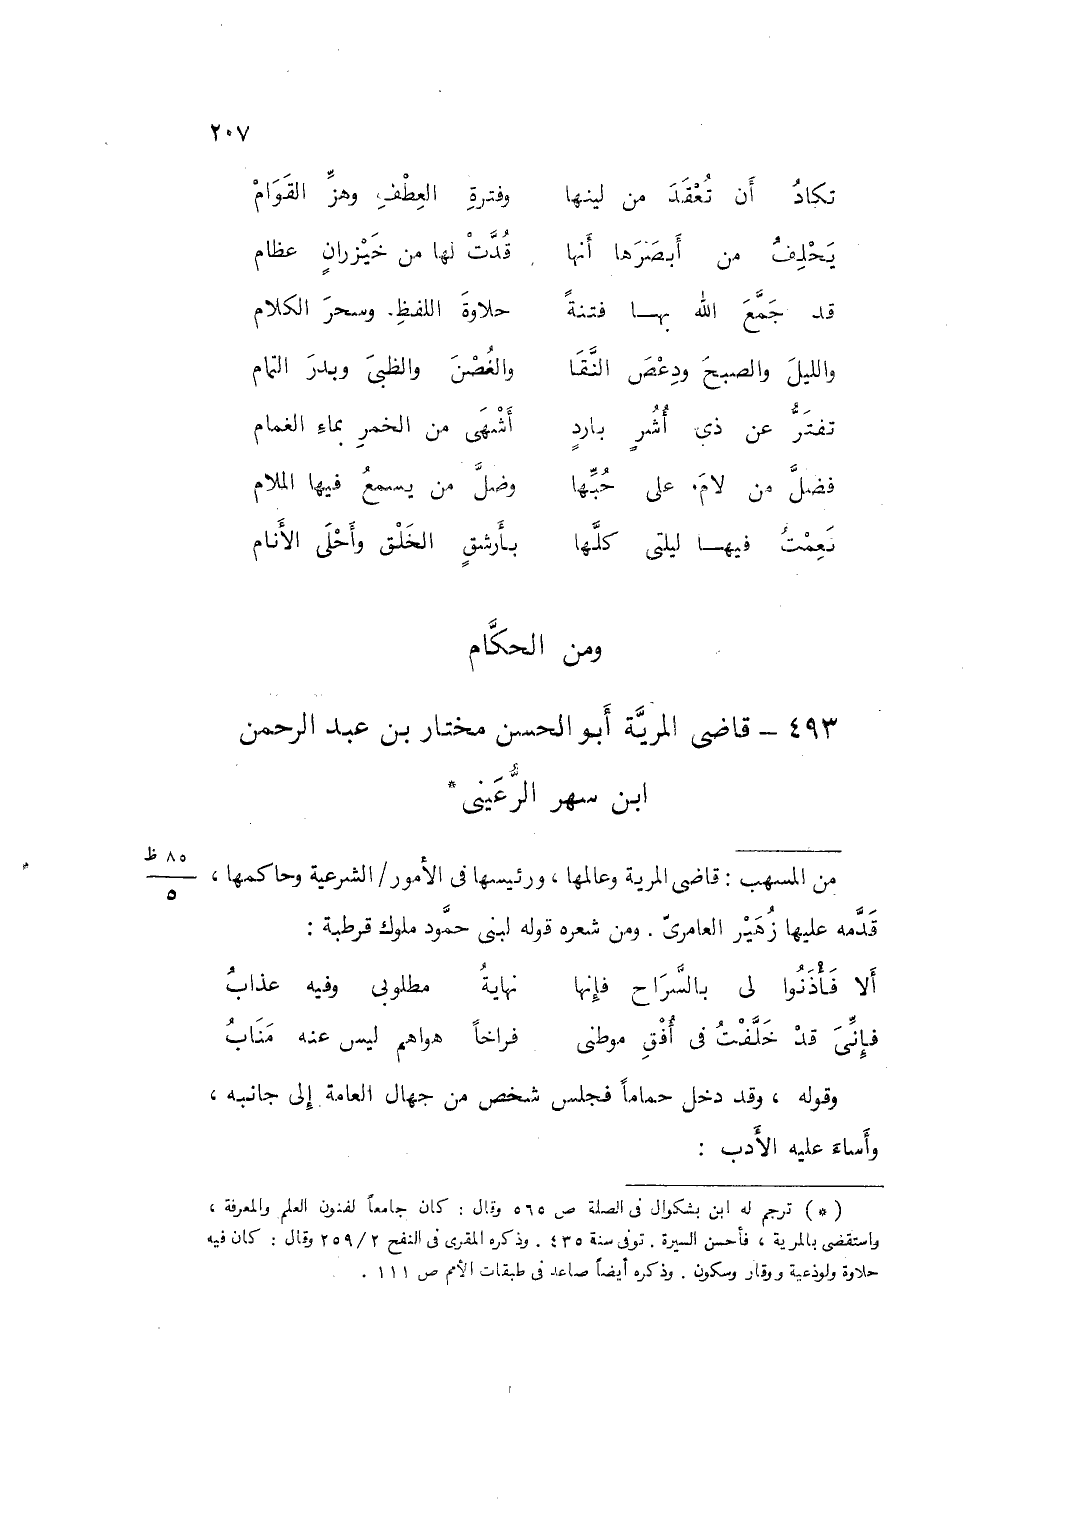 ٢٠٧
تكادُ أَن تُعْقَدَ من لينها وفترةِ العِطْفِ وهزِّ القَوَامْ
يَحْلِفُ من أَبصَرَها أَنها قُدَّتْ لها من خَيْزرانٍ عظام
قد جَمَّعَ الله بها فتنةً حلاوةَ اللفظِ وسحرَ الكلام
والليلَ والصبحَ ودِعْصَ النَّقَا والغُصْنَ والظبىَ وبدرَ التمام
تفتَرُّ عن ذى أُشُرٍ باردٍ أَشْهَى من الخمرِ بماءِ الغمام
فضلَّ من لامَ على حُبِّها وضلَّ من يسمعُ فيها الملام
نَعِمْتُ فيها ليلتى كلَّها بأَرشقِ الخَلْق وأَحْلَى الأَنام
ومن الحكَّام
٤٩٣ – قاضى المريَّة أَبو الحسن مختار بن عبد الرحمن
ابن سهر الرُّعَينى*
من المسهب : قاضى المرية وعالمها ، ورئيسها فى الأمور/الشرعية وحاكمها ، ٨٥ ظ
٥
قَدَّمه عليها زُهَيْر العامرىّ . ومن شعره قوله لبنى حمُّود ملوك قرطبة :
أَلا فَأْذَنُوا لى بالسَّرَاح فإنها نهايةُ مطلوبى وفيه عذابُ
فإِنِّىَ قدْ خَلَّفْتُ فى أُفْقِ موطنى فراخاً هواهم ليس عنه مَنَابُ
وقوله ، وقد دخل حماماً فجلس شخص من جهال العامة إلى جانبه ،
وأَساءَ عليه الأَدب :
(*) ترجم له ابن بشكوال فى الصلة ص ٥٦٥ وقال : كان جامعاً لفنون العلم والمعرفة ،
واستقضى بالمرية ، فأحسن السيرة . توفى سنة ٤٣٥ . وذكره المقرى فى النفح ٢/٢٥٩ وقال : كان فيه
حلاوة ولوذعية ووقار وسكون . وذكره أيضاً صاعد فى طبقات الأمم ص ١١١ .